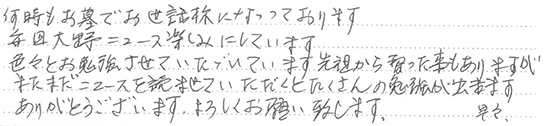 何時もお墓でお世話様になっております
毎回大野ニュース楽しみにしています
色々とお勉強させていたヾいています先祖から習った事もありますが
まだまだニュースを読ませていただくとたくさんの勉強が出来ます
ありがとうございます。よろしくお願い致します。
早々